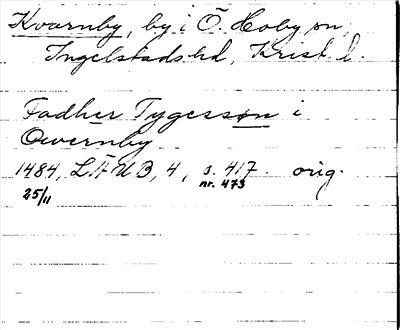 Kvarnby, by i Ö. Hoby sn,
Ingelstads hd, Krist. l.
Fadher Tygesson i
Qwernby
1484, LÄUB, 4, s. 417. orig.
25/11 nr. 473